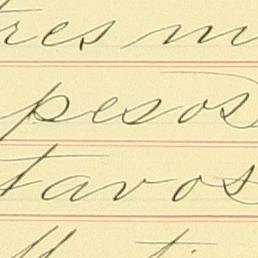 tres m
pesos
tavos